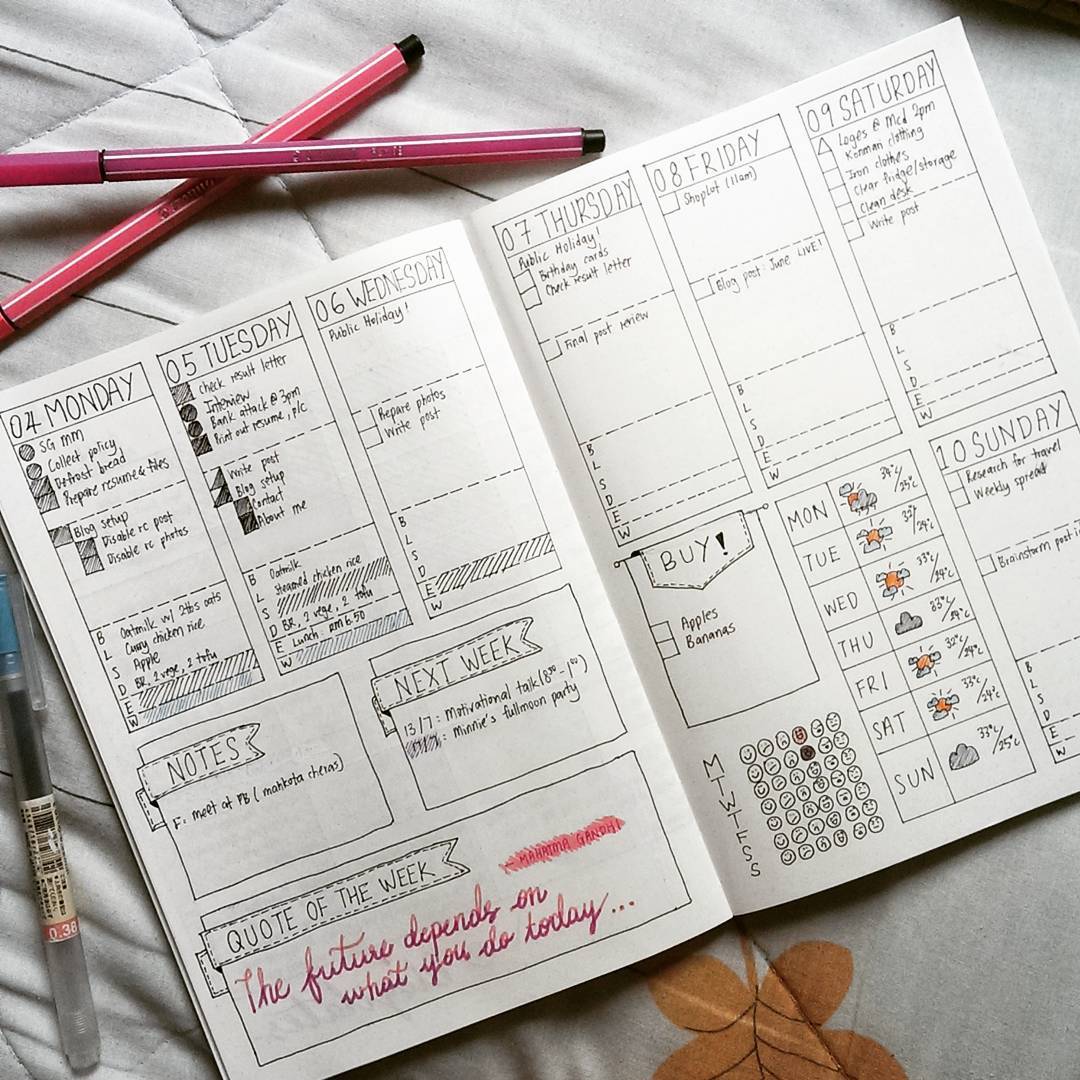 04 MONDAY
SG MM
Collect policy
Defrost bread
Prepare resume & files
Blog setup
Disable rc post
Disable rc photos
B Oatmilk w/ 2tbs oats
L Curry chicken rice
S Apple
D BR, 2 vege, 2 tofu
E
W
05 TUESDAY
check result letter
Interview
Bank attack @ 3pm
Print out resume, plc
Write post
Blog setup
Contact
About me
B Oatmilk
L Steamed chicken rice
S
D BR, 2 vege, 2 tofu
E Lunch: RM6.50
W
06 WEDNESDAY
Public Holiday!
Prepare photos
Write post
B
L
S
D
E
W
NOTES
F: meet at PB (mahkota cheras)
NEXT WEEK
13/7: Motivational talk (8
: Minnie's fullmoon party
QUOTE OF THE WEEK
MAHATMA GANDHI
The future depends on
what you do today...
07 THURSDAY
Public Holiday!
Birthday cards
Check result letter
Final post review
B
L
S
D
E
W
08 FRIDAY
Shoplot (11am)
Blog post: June LIVE!
B
L
S
D
E
W
09 SATURDAY
Loges @ Mcd 2pm
Konman clothing
Iron clothes
Clear fridge/storage
Clean desk
Write post
B
L
S
D
E
W
BUY!
Apples
Bananas
MON 34°c/25°c
TUE 24°c
WED 33°c/24°c
THU 33°c/24°c
FRI 32°c/24°c
SAT 33°c/24°c
SUN 33°c/25°c
M
T
W
T
F
S
S
10 SUNDAY
Research for travel
Weekly spread
Brainstorm post
B
L
S
D
E
W
0.38